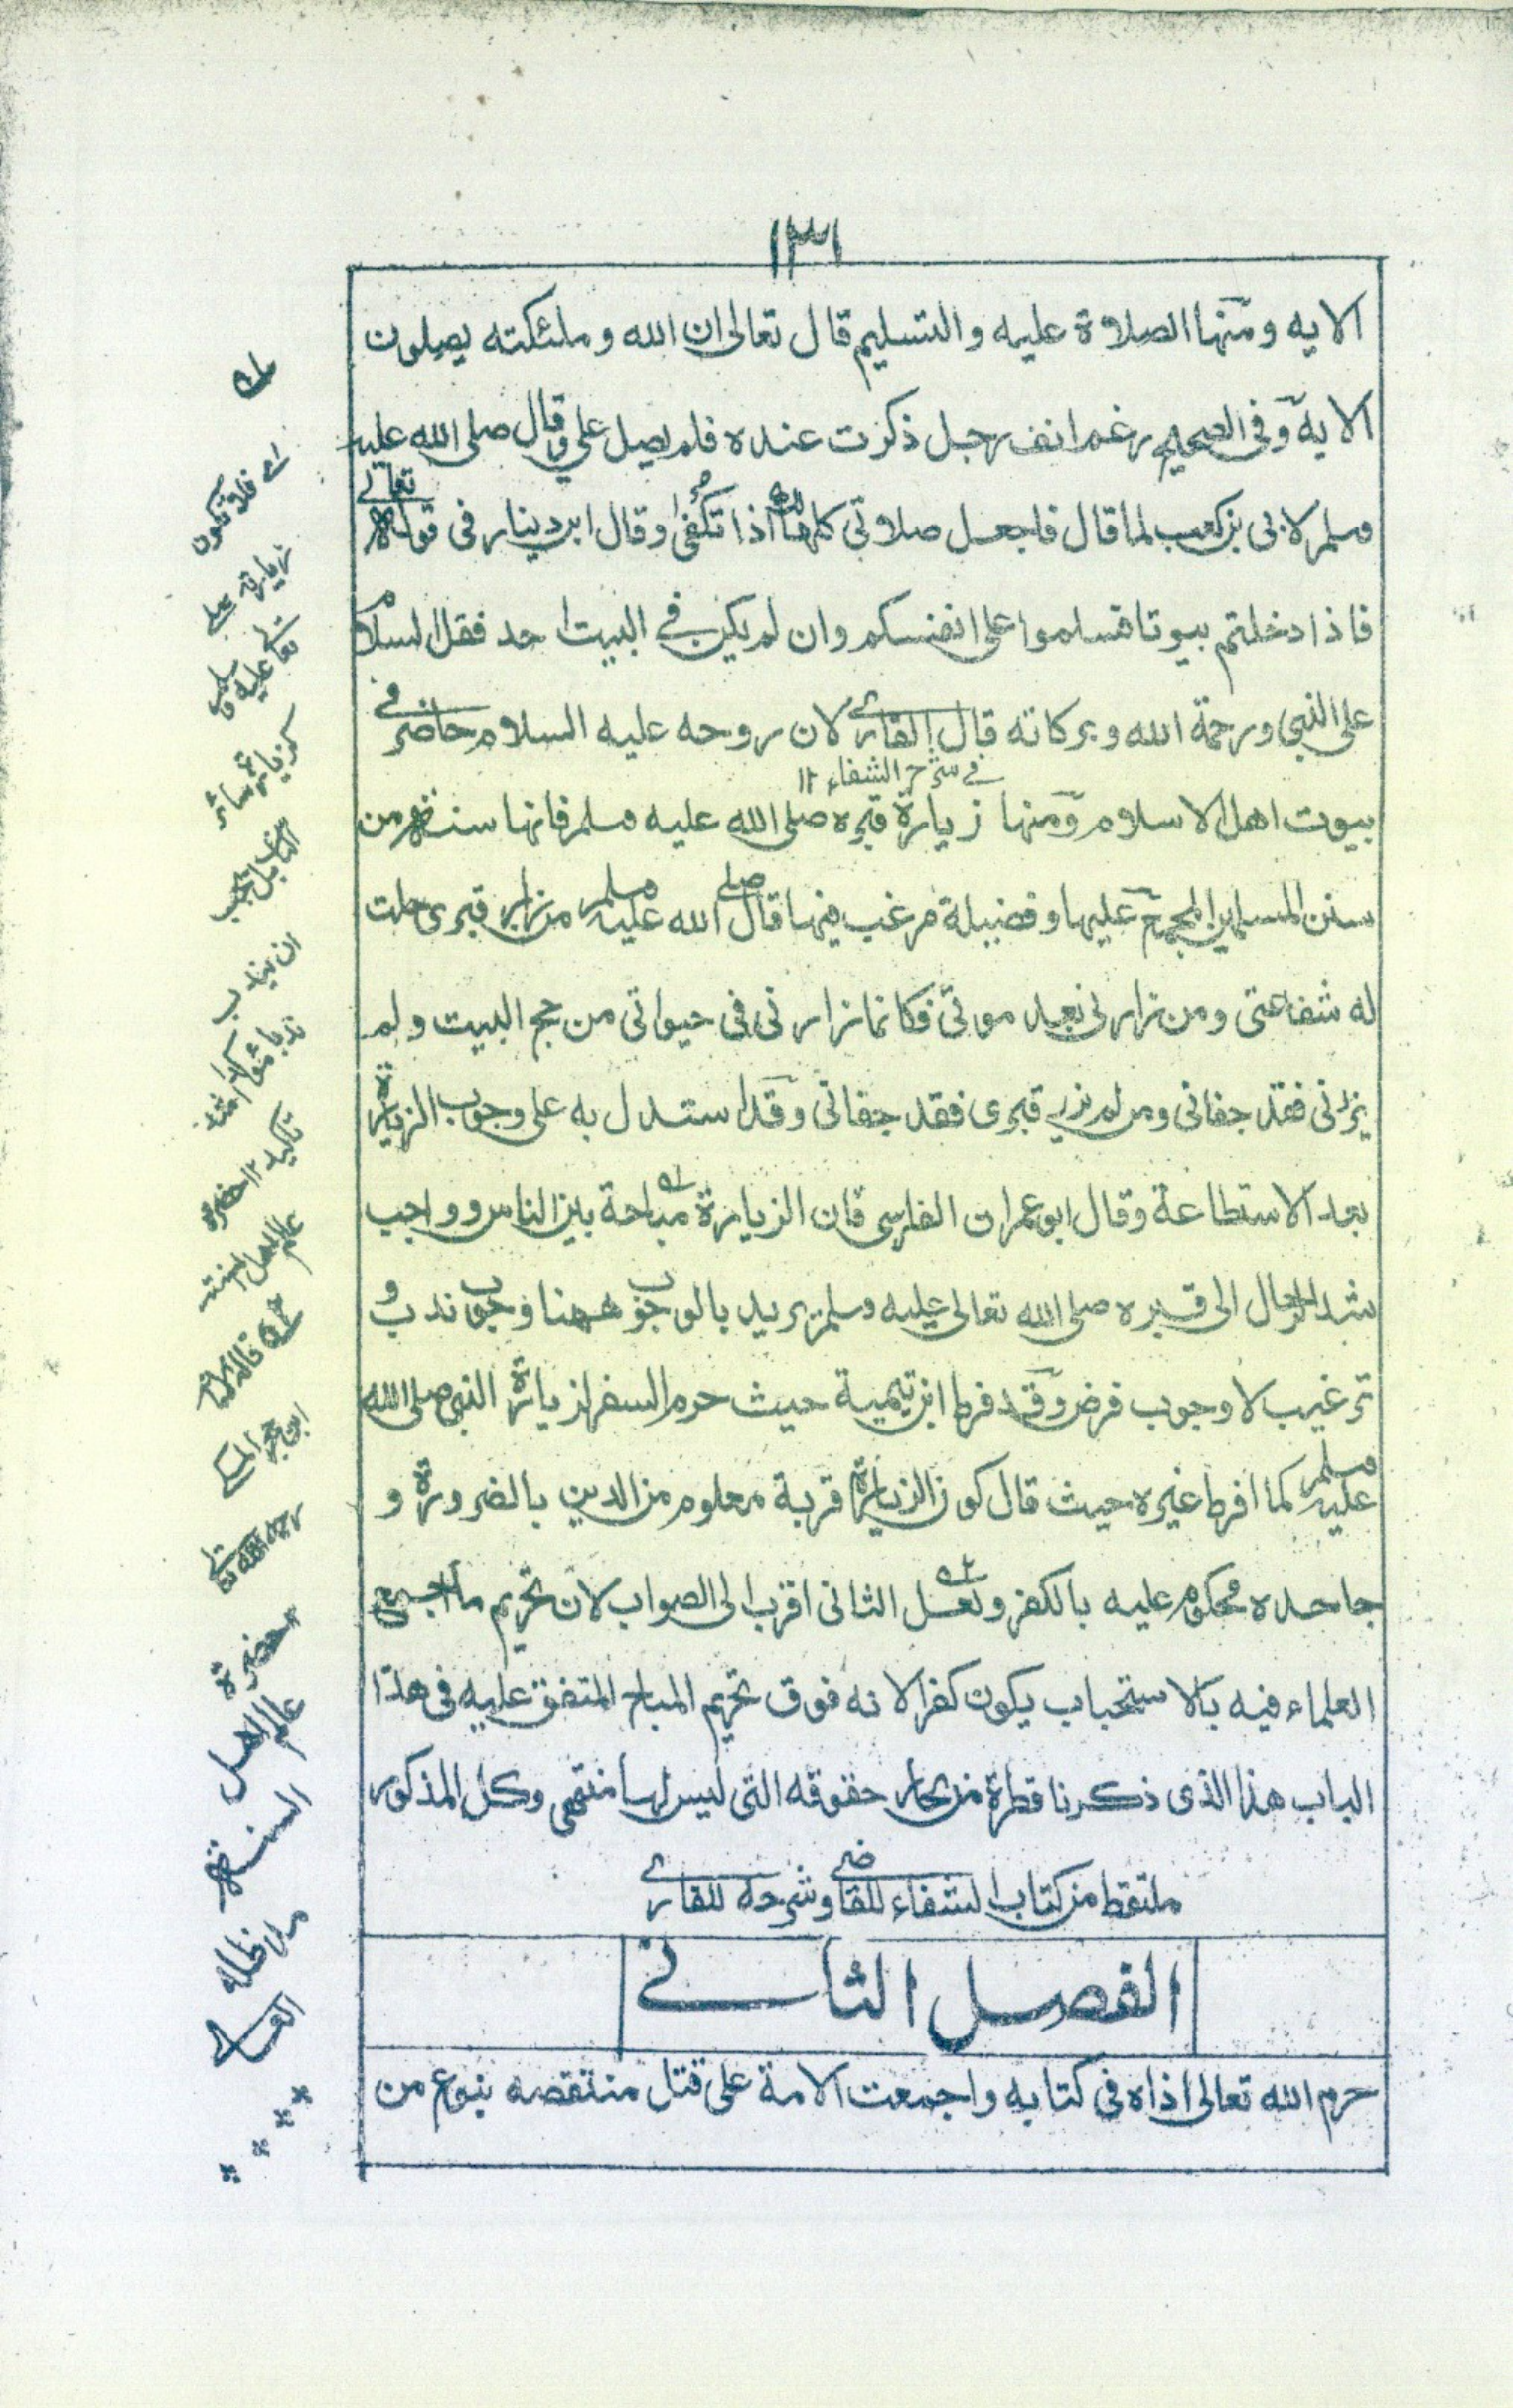 ١٣١
الايه ومنها الصلاة عليه والتسليم قال تعالى ان الله وملئكته يصلون
الاية وفى الصحيح رغم انف رجل ذكرت عنده فلم يصل علي وقال صلى الله عليه
وسلم لابى بن كعب لما قال فاجعل صلاتى كلها لك اذا تكفى وقال ابن دينار فى قوله تعالى
فاذا دخلتم بيوتا فسلموا على انفسكم وان لم يكن في البيت احد فقل السلام
على النبى ورحمة الله وبركاته قال القارى لان روحه عليه السلام حاضر في
في شرح الشفاء ١٢
بيوت اهل الاسلام ومنها زيارة قبره صلى الله عليه وسلم فانها سنة من
سنن المسلمين المجمع عليها وفضيلة مرغب فيها قال صلى الله عليه وسلم من زار قبرى حلت
له شفاعتى ومن زارنى بعد موتى فكانما زارنى فى حيواتى من حج البيت ولم
يزرنى فقد جفانى ومن لم يزر قبرى فقد جفانى وقد استدل به على وجوب الزيارة
بعد الاستطاعة وقال ابو عمران الفارسى فان الزيارة مباحة بين الناس وواجب
شد الرحال الى قبره صلى الله تعالى عليه وسلم يريد بالوجوب ههنا وجوب ندب و
ترغيب لا وجوب فرض وقد فرط ابن تيمية حيث حرم السفر لزيارة النبى صلى الله
عليه وسلم كما افرط غيره حيث قال كون الزيارة قربة معلوم من الدين بالضرورة و
جاحده محكوم عليه بالكفر ولعل الثانى اقرب الى الصواب لان تحريم ما اجمع
العلماء فيه بالاستحباب يكون كفرا لانه فوق تحريم المباح المتفق عليه فى هذا
الباب هذا الذى ذكرنا قطرة من بحار حقوقه التى ليس لها منتهى وكل المذكور
ملتقط من كتاب الشفاء للقاضى وشرحه للقارى
الفصل الثانى
حرم الله تعالى اذاه فى كتابه واجمعت الامة على قتل منتقصه بنوع من
اى فلا تكون
زيارته صلى
تعالى عليه وسلم
ان يندب
تاكيد ١٢ حضرة
عالم اهل السنة
قاله الامام
ابن حجر المكى
رحمه الله تعالى
١٢ حضرة
عالم اهل
السنة
مد ظله